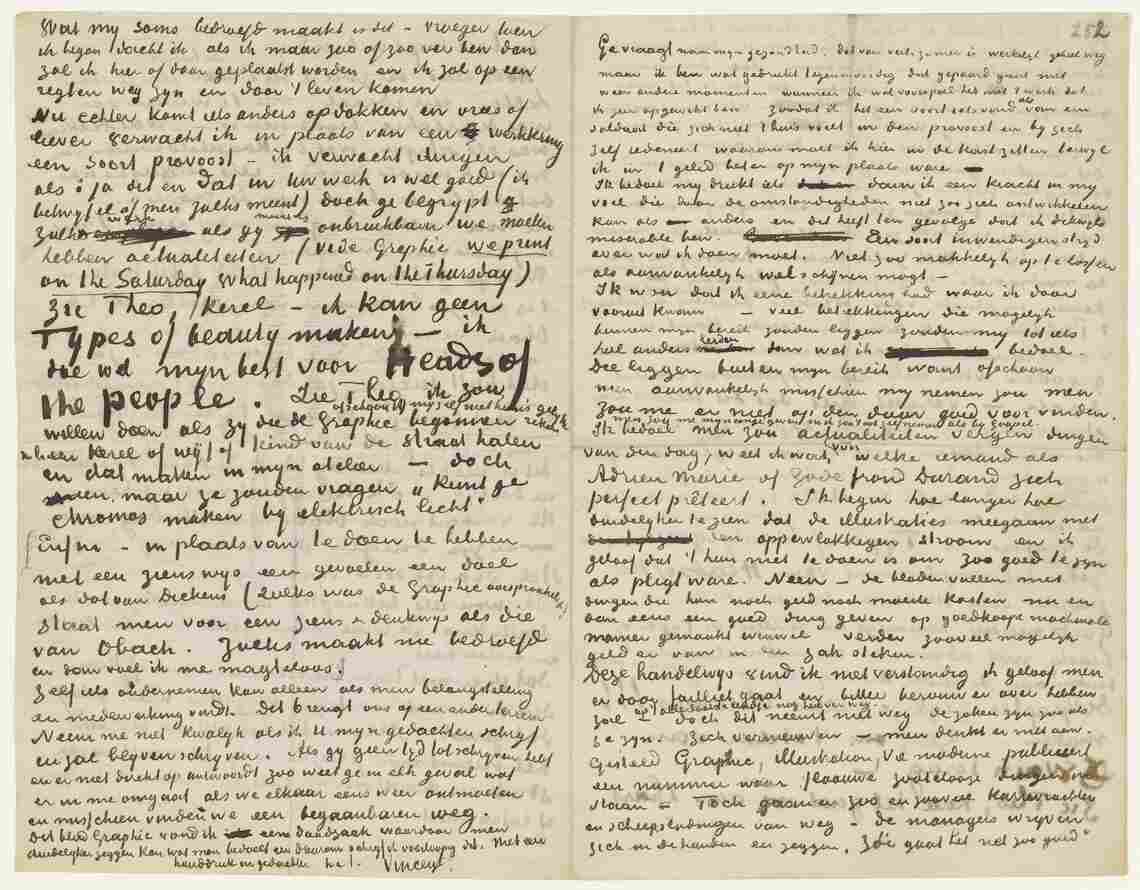 Wat my soms bedroefd maakt is dit – vroeger toen
ik begon dacht ik, als ik maar zoo of zoo ver ben dan
zal ik hier of daar geplaatst worden en ik zal op een
regten weg zyn en door 't leven komen
Nu echter komt iets anders opdokken en vrees of
liever verwacht ik in plaats van een werkkring
een soort provoost – ik verwacht dingen
als: ja dit en dat in Uw werk is wel goed (ik
betwyfel of men zulks meent) doch ge begrypt
zulk werk als gy maakt is onbruikbaar we moeten
hebben actualiteiten (vide Graphic we print
on the Saturday what happend on the Thursday)
Zie Theo, kerel – ik kan geen
Types of beauty maken – ik
doe wel myn best voor Heads of
the people. Zie Theo ik zou
ofschoon ik my zelf met hunis gelyk reken
willen doen als zy die de Graphic begonnen
n heer kerel of wyf of kind van de straat halen
en dat maken in myn atelier – doch
neen, maar ze zouden vragen "kunt ge
chromos maken by elektrisch licht"
Enfin – in plaats van te doen te hebben
met een zienswys een gevoelen een doel
als dat van Dickens (zulks was de Graphic oorspronkelyk)
staat men voor een ziens & denkwys als die
van Obach. Zulks maakt me bedroefd
en dan voel ik me magteloos.
Zelf iets ondernemen kan alleen als men belangstelling
en medewerking vindt. Dit brengt ons op een ander terrein
Neem me niet kwalyk als ik U myn gedachten schryf
en zal blyven schryven. Als gy geen tyd tot schryven hebt
en er niet direkt op antwoordt zoo weet ge in elk geval wat
er in me omgaat als we elkaar eens weer ontmoeten
en misschien vinden we een begaanbaren weg.
Dit blad Graphic vond ik een daadzaak waardoor men
duidelyker zeggen kan wat men bedoelt en daarom schryf ik voorloopig dit. Met een
handdruk in gedachten t.à t. Vincent.
252
Ge vraagt naar myn gezondheid. dat van verleden zomer is werkelyk geheel weg
maar ik ben wat gedrukt tegenwoordig dat gepaard gaat met
weer andere momenten wanneer ik wel voorspoed heb met 't werk dat
ik zeer opgewekt ben. Zoodat ik het een soort iets vond als van een
soldaat die zich niet t'huis voelt in den provoost en by zich
zelf redeneert waarom moet ik hier in de kast zitten terwyl
ik in 't gelid beter op myn plaats ware –
Ik bedoel my drukt iets daar ik een kracht in my
voel die door de omstandigheden niet zoo zich ontwikkelen
kan als anders en dit heeft ten gevolge dat ik dikwyls
miserable ben. Een soort inwendigen stryd
over wat ik doen moet. Niet zoo makkelyk op te lossen
als aanvankelyk wel schynen mogt –
Ik wou dat ik eene betrekking had waar ik door
vooruit kwam – veel betrekkingen die mogelyk
binnen myn bereik zouden liggen zouden my tot iets
heel anders leiden dan wat ik bedoel.
Die liggen buiten myn bereik want ofschoon
men aanvankelyk misschien my nemen zou men
zou me er niet op den duur goed voor vinden.
Ik bedoel men zou actualiteiten vergen dingen
van den dag, weet ik wat, voor welke iemand als
Adrien Marie of Godefroy Durand zich
perfect prêteert. Ik begin hoe langer hoe
duidelyker te zien dat de illustraties meegaan met
den oppervlakkigen stroom en ik
geloof dat 't hun niet te doen is om zoo goed te zyn
als pligt ware. Neen – de bladen vullen met
dingen die hun noch geld noch moeite kosten nu en
dan eens een goed ding geven op goedkoope machinale
manier gemaakt evenwel verder zooveel mogelyk
geld er van in den zak steken.
Deze handelwys vind ik niet verstandig ik geloof men
er door failliet gaat en bitter berouw er over hebben
zal
doch dit neemt niet weg de zaken zyn zoo als
ze zyn. Zich vernieuwen – men denkt er niet aan.
Gesteld Graphic, Illustration, Vie moderne publiceert
een nummer waar flaauwe zouteloose dingen in
staan – Toch gaan er zoo en zooveel karrevrachten
en scheepsladingen van weg – de managers wryven
zich in de handen en zeggen, "Zóó gaat het net zoo goed"